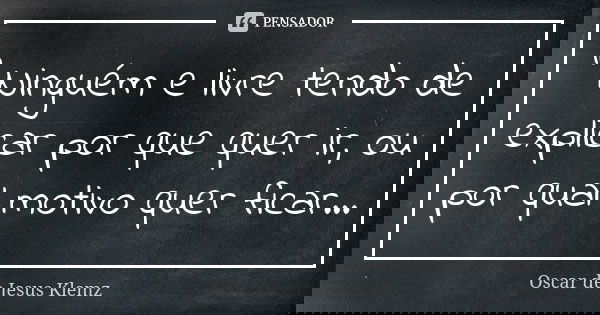 PENSADOR
Ninguém e livre tendo de
explicar por que quer ir, ou
por qual motivo quer ficar....
Oscar de Jesus Klemz